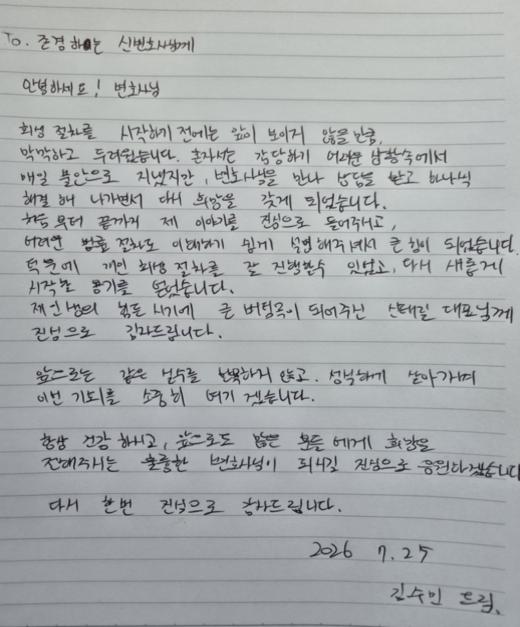 To. 존경하는 신변호사님께
안녕하세요! 변호사님
회생 절차를 시작하기 전에는 앞이 보이지 않을 만큼,
막막하고 두려웠습니다. 혼자서는 감당하기 어려운 상황속에서
매일 불안으로 지냈지만, 변호사님을 만나 상담을 받고 하나씩
해결해 나가면서 다시 희망을 갖게 되었습니다.
처음부터 끝까지 제 이야기를 진심으로 들어주시고,
어려운 법률 절차도 이해하기 쉽게 설명해주셔서 큰 힘이 되었습니다.
덕분에 개인 회생 절차를 잘 진행할수 있었고, 다시 새롭게
시작할 용기를 얻었습니다.
제 인생의 힘든 시기에 큰 버팀목이 되어주신 대표님께
진심으로 감사드립니다.
앞으로는 같은 실수를 반복하지 않고. 성실하게 살아가며
이번 기회를 소중히 여기 겠습니다.
항상 건강하시고, 앞으로도 많은 분들에게 희망을
전해주시는 훌륭한 변호사님이 되시길 진심으로 응원하겠습니다
다시 한번 진심으로 감사드립니다.
2026 7.25
김수민 드림.